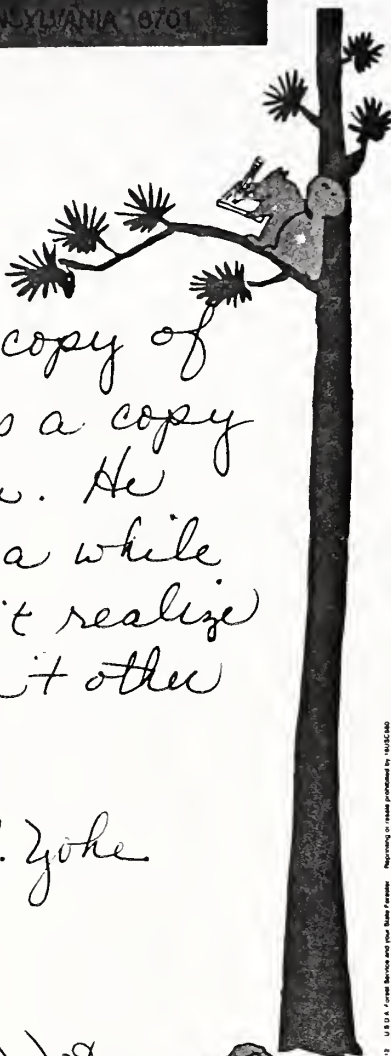 PENNSYLVANIA 6701
copy of
s a copy
. He
a while
't realize
it other
. Yohe
USDA Forest Service and your State Forester Reprinting or resale prohibited by 18USC580